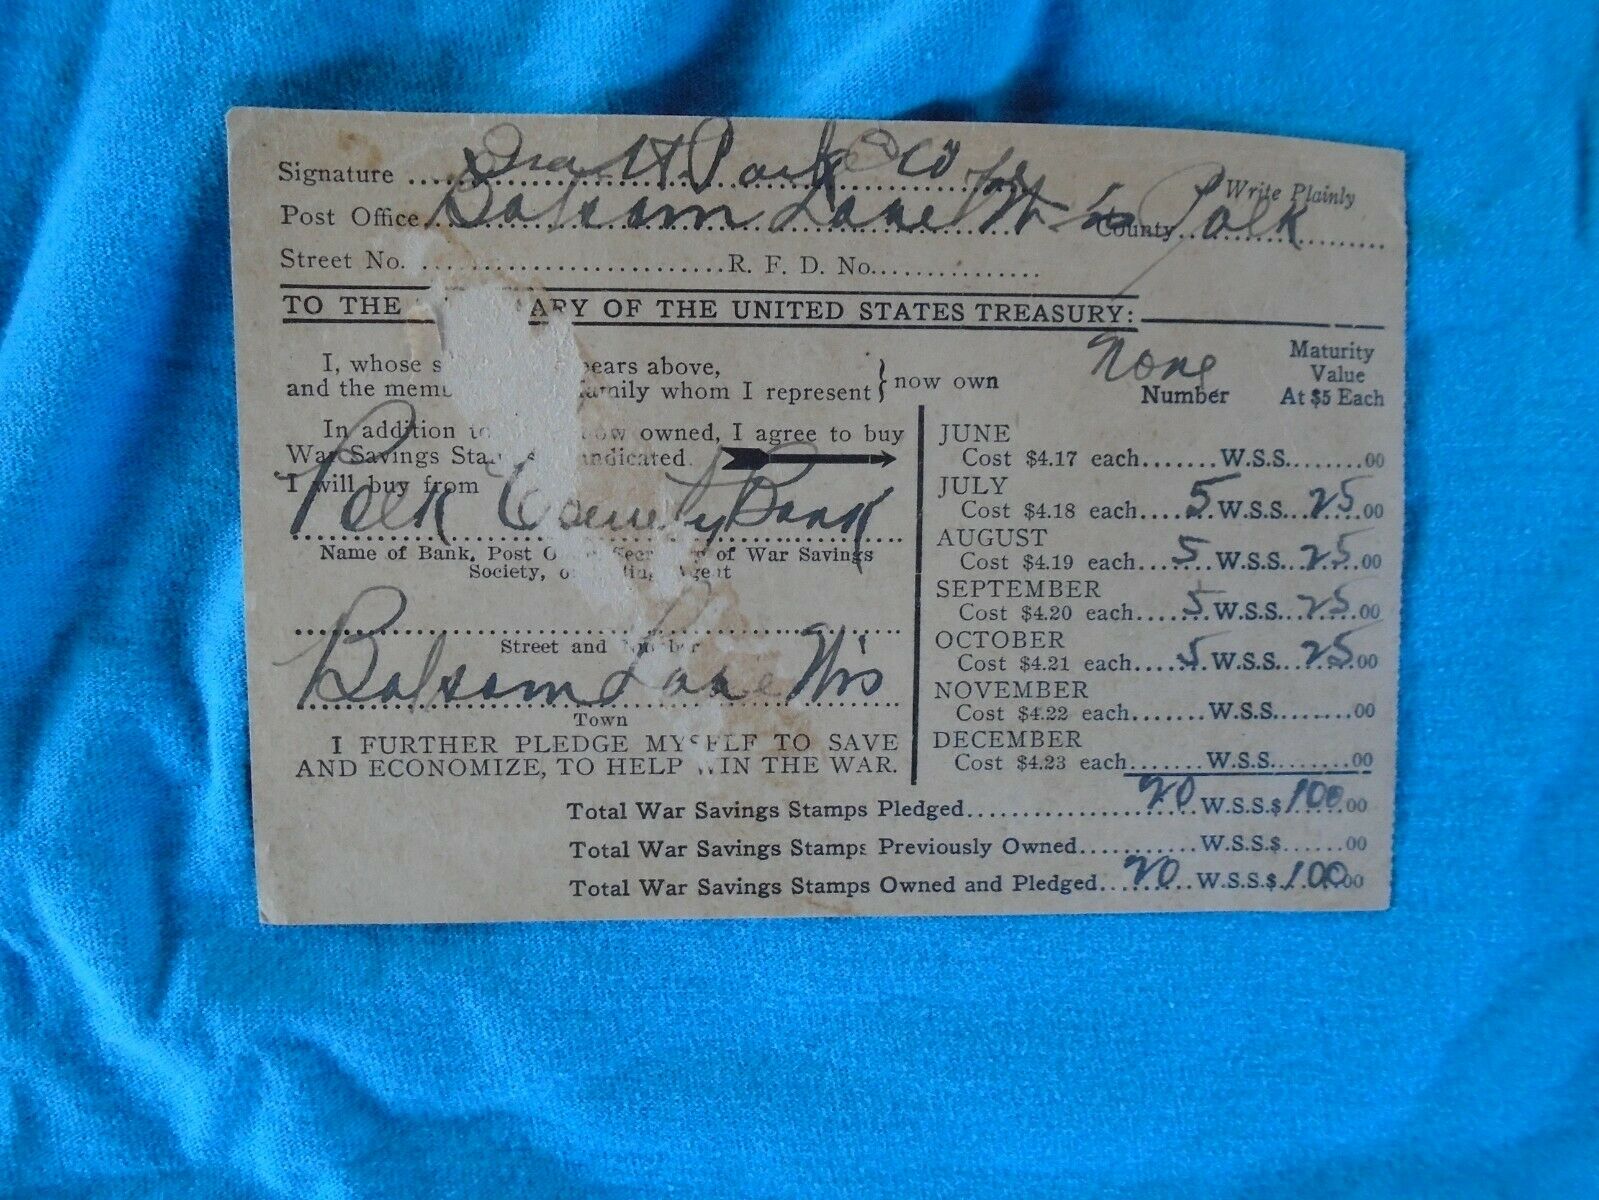 Signature ........ Ira H. Park & Co
Write Plainly
Post Office Balsam Lake Wis County Polk
Street No. ........ R. F. D. No. ........
TO THE ARY OF THE UNITED STATES TREASURY:
I, whose s pears above,
and the mem family whom I represent } now own None Number
Maturity Value At $5 Each
In addition to now owned, I agree to buy
War Savings Sta indicated
I will buy from
Polk County Bank
Name of Bank, Post O Secr y of War Savings
Society, o ting Agent
Street and Number
Balsam Lake Wis
Town
I FURTHER PLEDGE MYSELF TO SAVE
AND ECONOMIZE, TO HELP WIN THE WAR.
JUNE
Cost $4.17 each....... W.S.S. ........00
JULY
Cost $4.18 each.... 5 W.S.S. 25.00
AUGUST
Cost $4.19 each.... 5 W.S.S. 25.00
SEPTEMBER
Cost $4.20 each.... 5 W.S.S. 25.00
OCTOBER
Cost $4.21 each.... 5 W.S.S. 25.00
NOVEMBER
Cost $4.22 each....... W.S.S. ........00
DECEMBER
Cost $4.23 each....... W.S.S. ........00
Total War Savings Stamps Pledged........ 20 W.S.S.$ 100.00
Total War Savings Stamps Previously Owned........ W.S.S.$ ......00
Total War Savings Stamps Owned and Pledged.. 20 W.S.S.$ 100.00